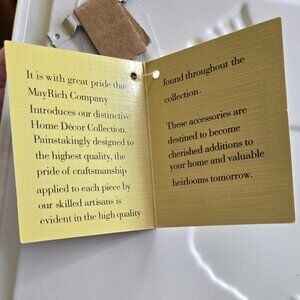 It is with great pride that
MayRich Company
Introduces our distinctive
Home Décor Collection.
Painstakingly designed to
the highest quality, the
pride of craftsmanship
applied to each piece by
our skilled artisans is
evident in the high quality
found throughout the
collection.
These accessories are
destined to become
cherished additions to
your home and valuable
heirlooms tomorrow.